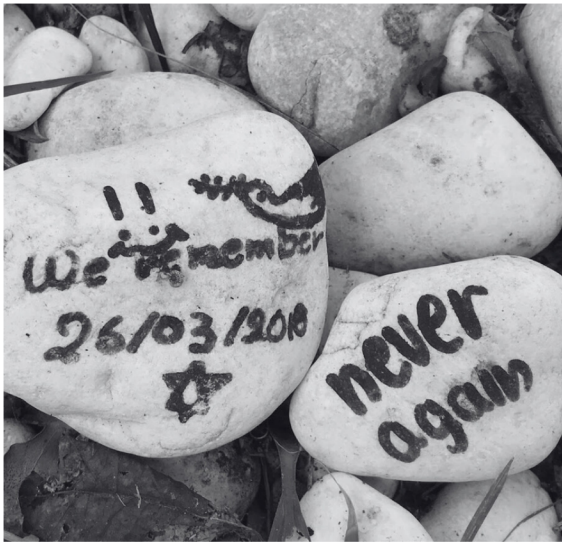 !!
We remember
26/03/2018
never
again